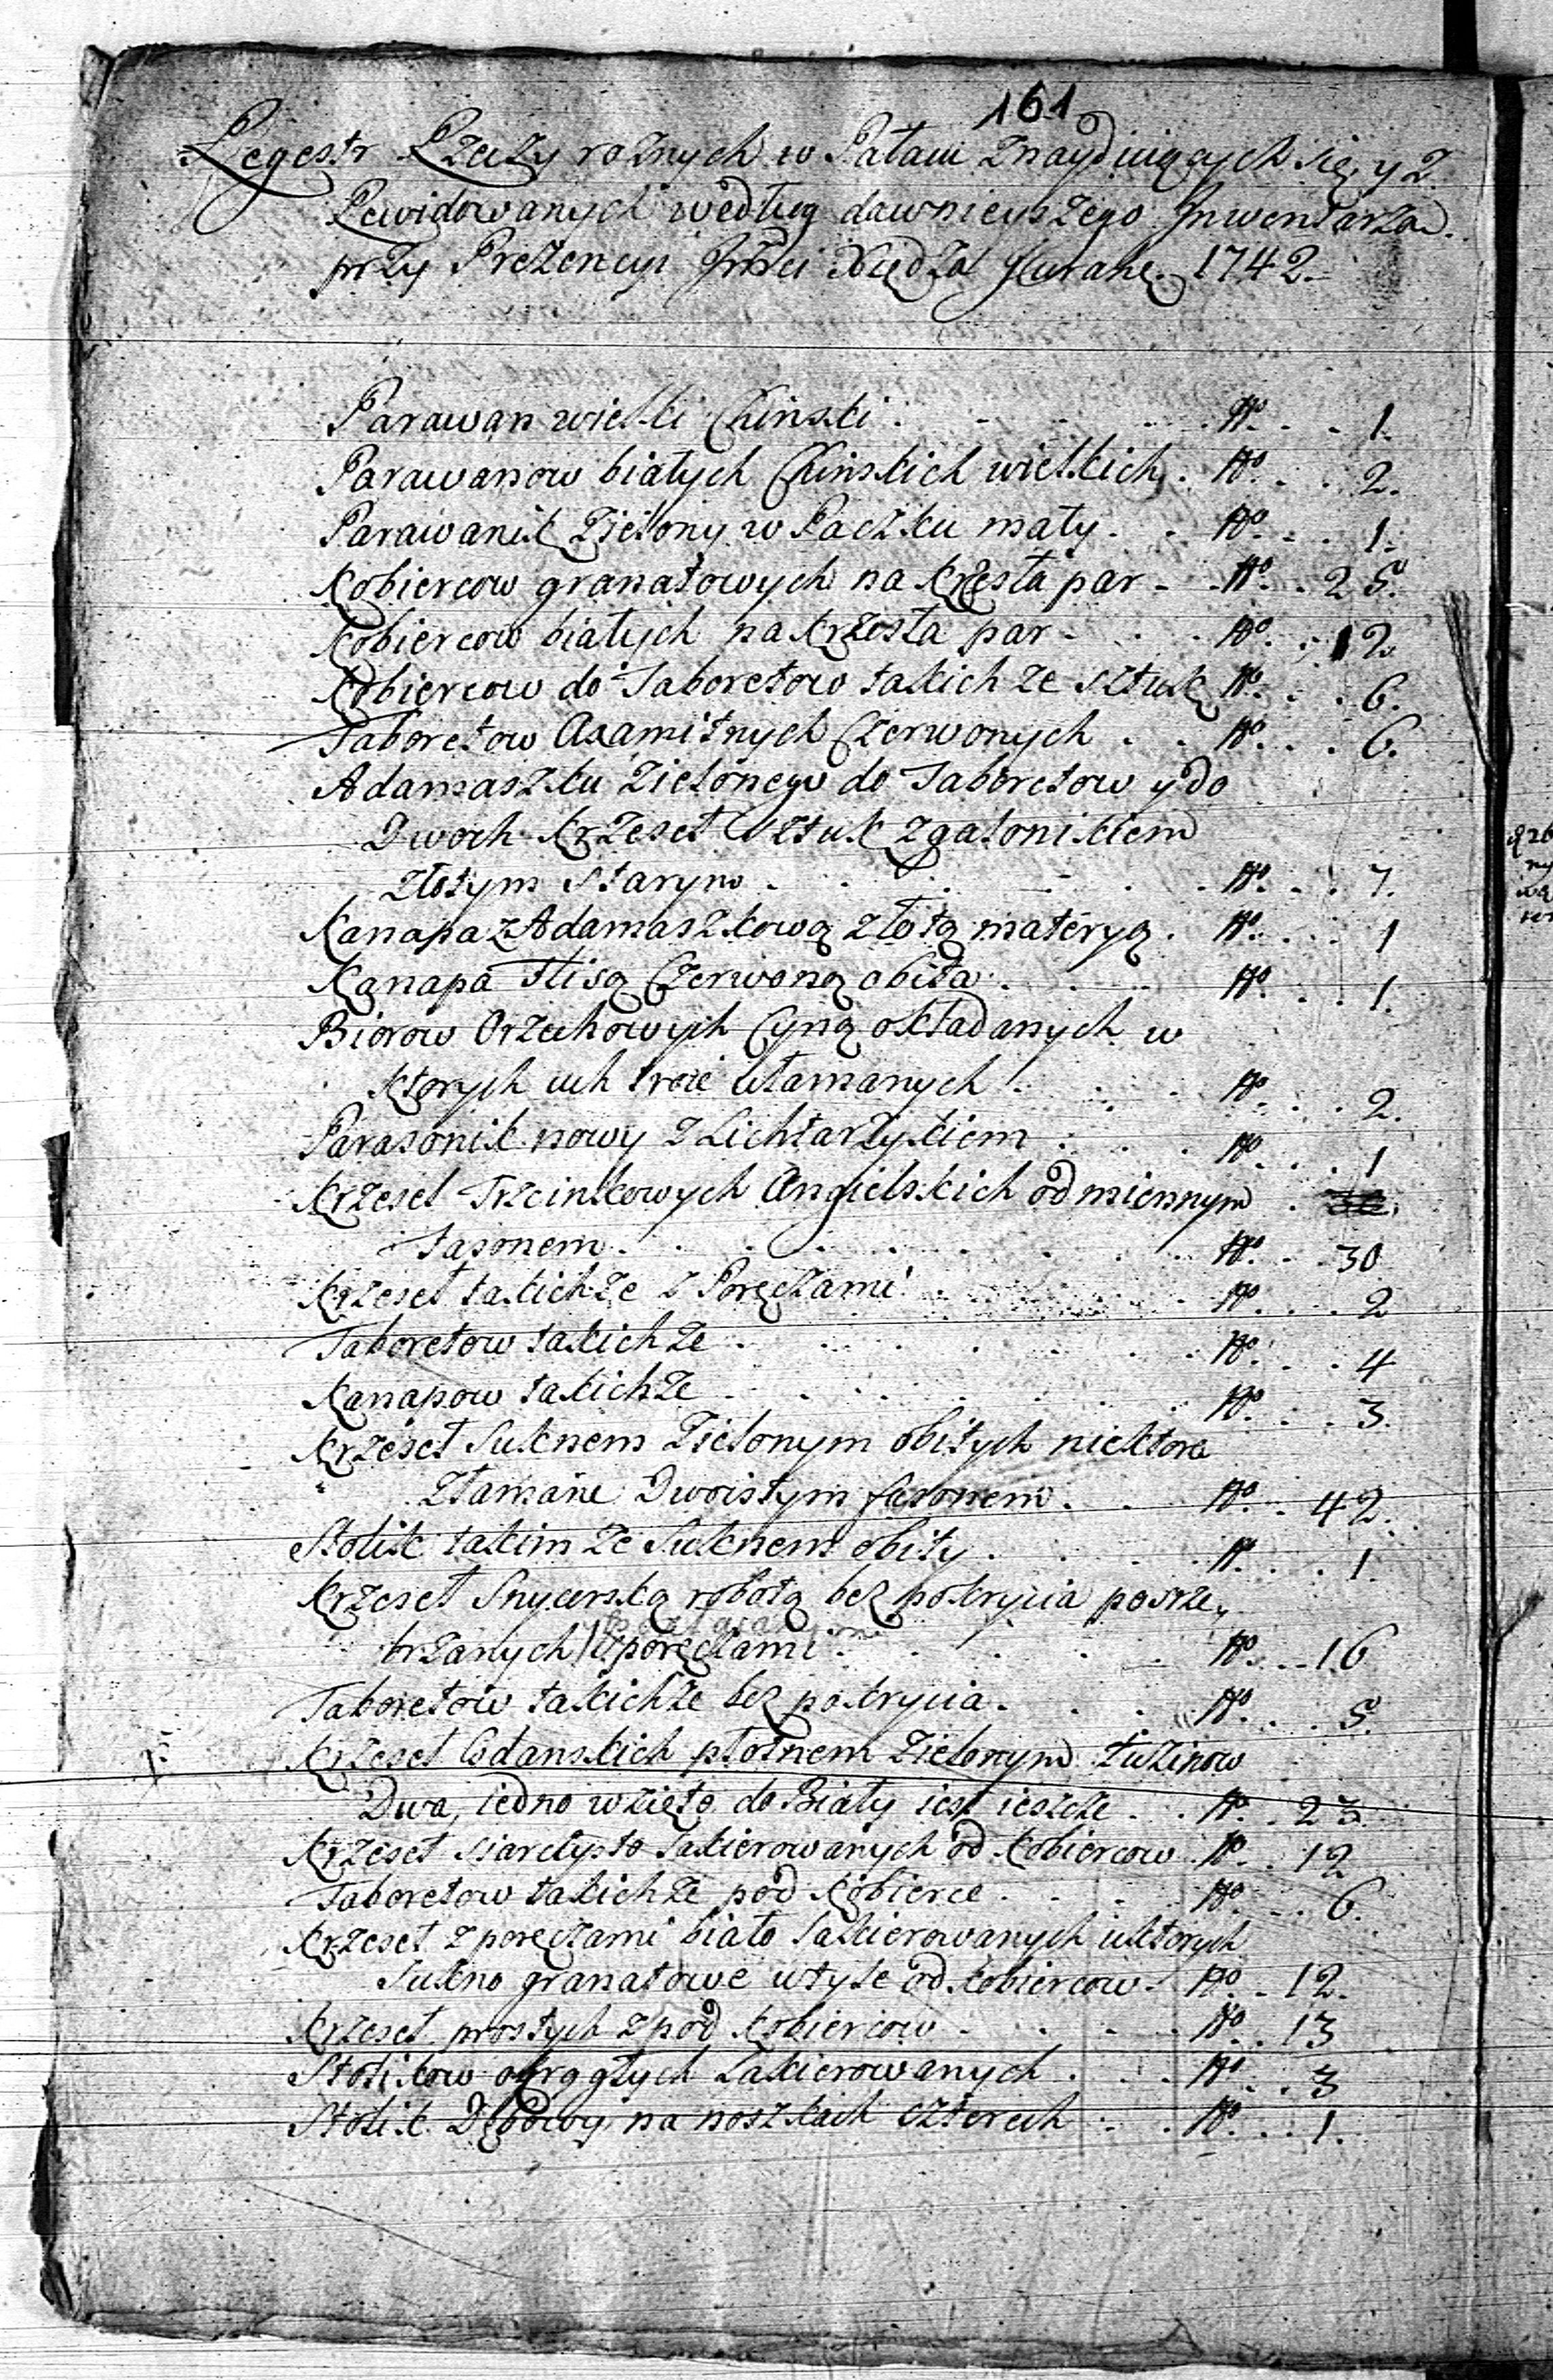 161
Regestr Rzeczy roznych w Pałacu znayduiących się, y z
Rewidowanych według dawnieyszego Jnwentarza
przy Prezencyi Jmści Xiędza 1742.
Parawan wielki Chinski . . . No. . . 1.
Parawanow białych Chinskich wielkich . No. . . 2.
Parawanik Zielony w Paczku mały . . No. . . 1.
Kobiercow granatowych na krzesła par . No. . 25.
Kobiercow białych na krzesła par . . No. . 12.
Kobiercow do Taboretow takich ze sztuk No. . . 6.
Taboretow Axamitnych Czerwonych . . No. . . 6.
Adamaszku Zielonego do Taboretow y do
Dwoch Krzeseł Sztuk z galonikiem
złotym Starym . . . No. . . 7.
Kanapa z Adamaszkową złotą materyą . No. . . 1
Kanapa Flisą Czerwoną obita . . . No. . . 1.
Biorow Orzechowych Cyną okładanych w
ktorych uch troie ułamanych . . . No. . . 2.
Parasonik nowy z Lichtarzykiem . . . No. . . 1
Krzeseł Trzcinkowych Angielskich odmiennym .
Fasonem . . . No. . . 30
Krzeseł takichze z Poręczami . . . No. . . 2
Taboretow takichze . . . No. . . 4
Kanapow takichze . . . No. . . 3.
Krzeseł Suknem Zielonym obitych niektore
złamane Dwoistym fasonem . . No. . 42.
Stolik takim ze Suknem obity . . . No. . . 1.
Krzeseł Snycerską robotą bez pokrycia posre,
brzanych z poręczami . . . No. . . 16
Taboretow takichze bez pokrycia . . . No. . . 5.
Krzeseł Gdanskich płotnem Zielonym Tuzinow
Dwa, iedno wzięto do Biały iest ieszcze . . No. . 23.
Krzeseł lakierowanych od Kobiercow . No. . 12
Taboretow takichze pod Kobierce . . . No. . . 6.
Krzeseł z poręczami biało lakierowanych u ktorych
Sukno granatowe w tyle od kobiercow . No. . 12.
Krzeseł prostych z pod Kobiercow . . . No. . 13
Stolikow okrągłych Lakierowanych . . . No. . . 3
Stolik Dębowy na noszkach czterech . . No. . . 1.